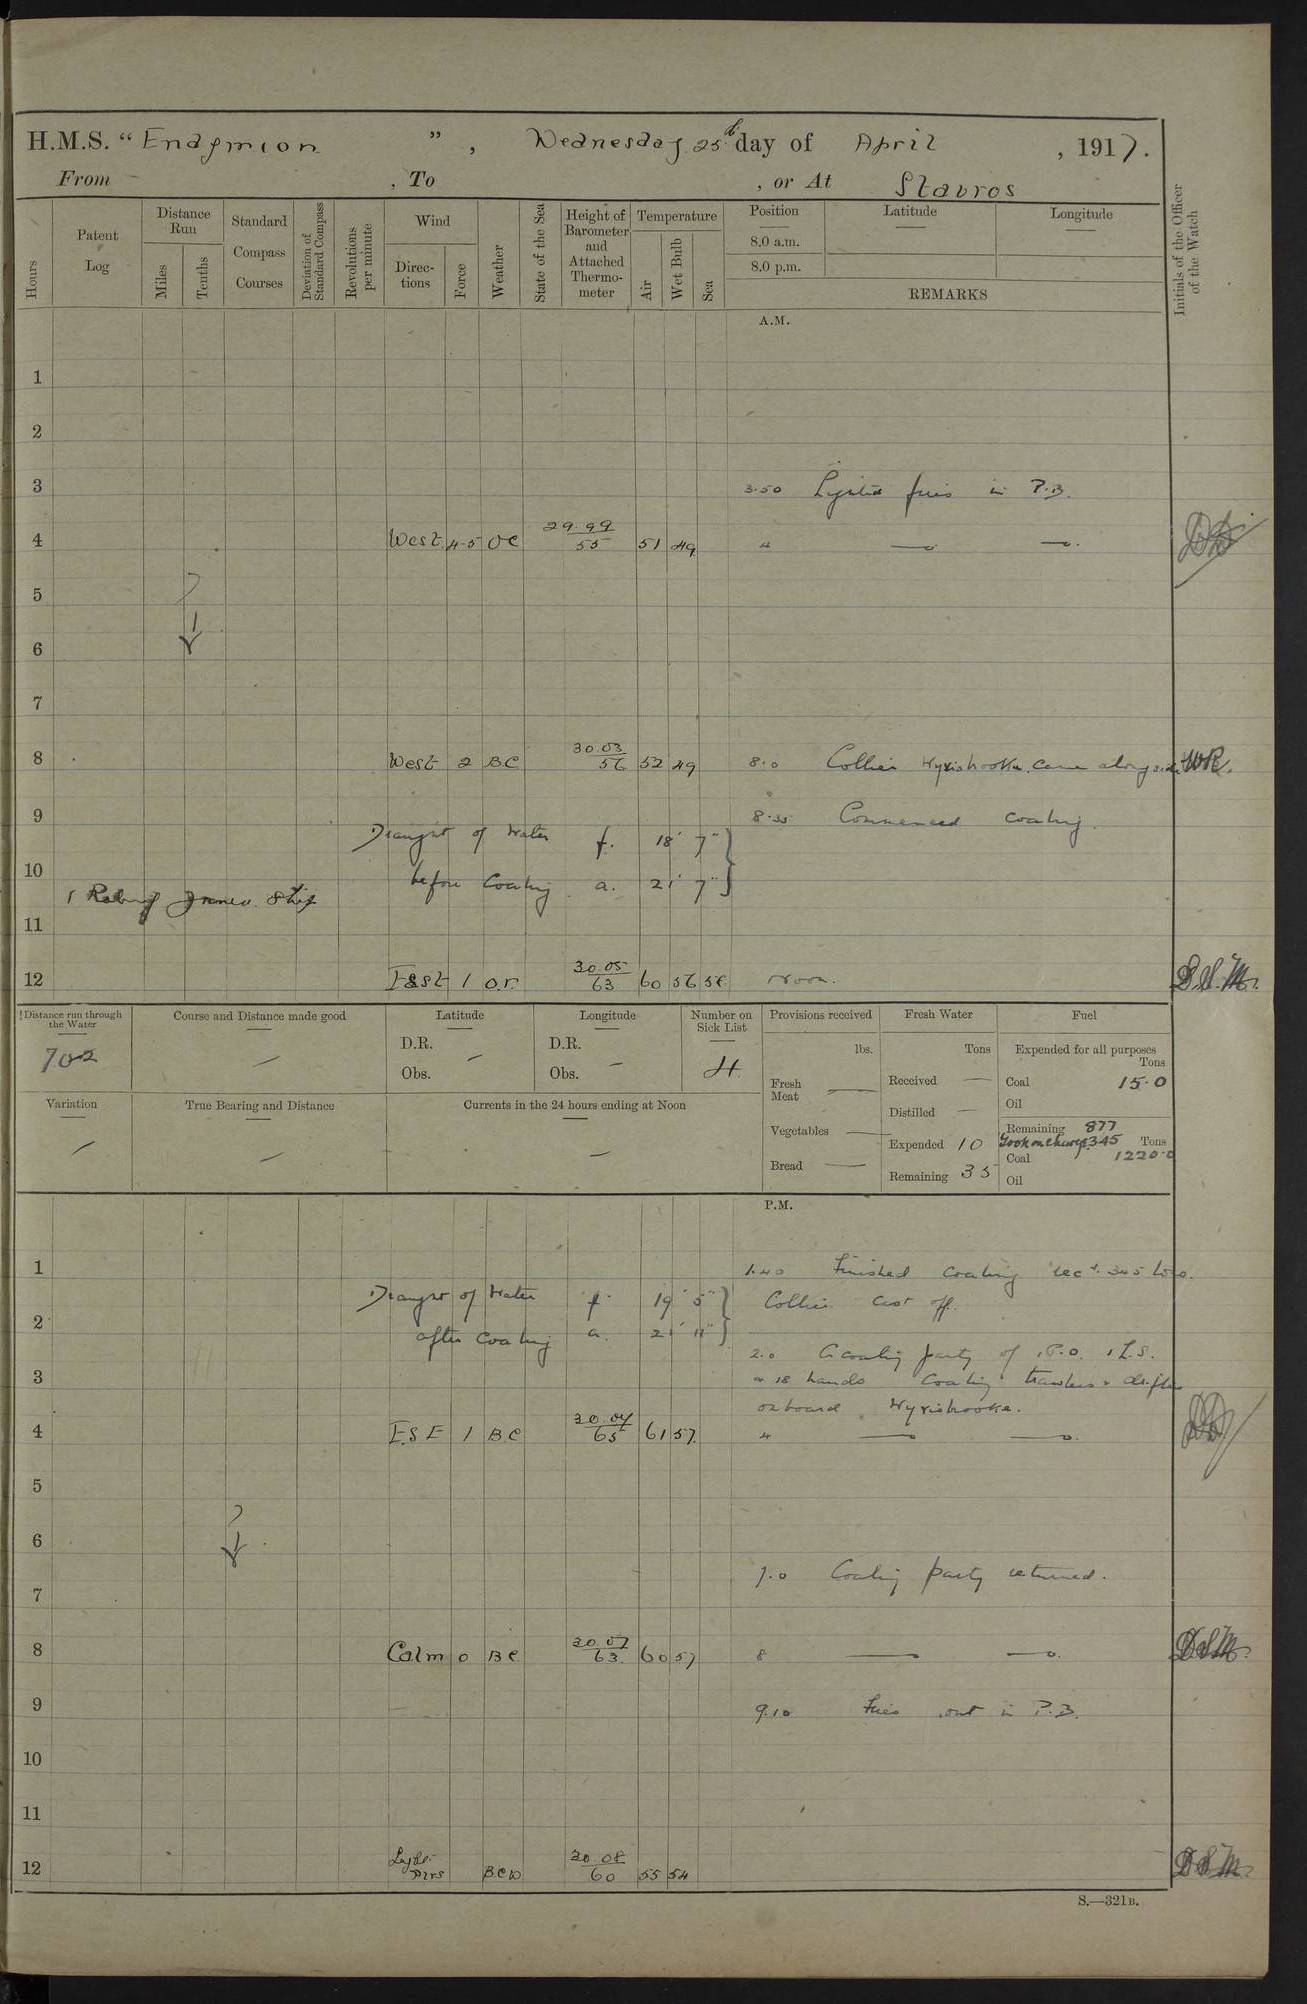 H.M.S. " Endymion ", Wednesday 25th day of April , 1917.
From , To , or At Stavros
Hours
Patent Log
Distance Run
Miles
Tenths
Standard Compass Courses
Deviation of Standard Compass
Revolutions per minute
Wind
Direc-tions
Force
Weather
State of the Sea
Height of Barometer and Attached Thermo-meter
Temperature
Air
Wet Bulb
Sea
Position
8.0 a.m.
8.0 p.m.
Latitude
Longitude
REMARKS
Initials of the Officer of the Watch
A.M.
1
2
3 3.50 Lighted fires in P.B.
4 West 4-5 OC 29.99 55 51 49 4 — —.
5
6
7
8 West 2 BC 30.03 56 52 49 8.0 Collier came alongside WR.
9 8.35 Commenced coaling.
Draught of Water f. 18' 7"
10 before Coaling a. 21' 7"
1 Rating Joined Ship
11
12 East 1 o.r. 30.05 63 60 56 56 Noon. D.S.M.
Distance run through the Water
702
Course and Distance made good
—
Latitude
D.R. —
Obs.
Longitude
D.R.
Obs. —
Number on Sick List
4
Provisions received
lbs.
Fresh Meat —
Vegetables —
Bread —
Fresh Water
Tons
Received —
Distilled —
Expended 10
Remaining 35
Fuel
Expended for all purposes
Tons
Coal 15.0
Oil
Remaining 877
Took on charge 345 Tons
Coal 1220.0
Oil
Variation
—
True Bearing and Distance
—
Currents in the 24 hours ending at Noon
—
P.M.
1 1.40 Finished coaling recd. 345 tons.
Draught of Water f. 19' 5" Collier cast off.
2
after coaling a. 21' 11"
2.0 coaling party of 1 P.O. 1 L.S.
3 & 18 hands coaling trawlers & drifters
onboard
4 ESE 1 BC 30.04 65 61 57 4 — —.
5
6
7.0 Coaling party returned.
7
8 Calm 0 BC 30.07 63 60 57 8 — —. DSM.
9 9.10 Fires out in P.B.
10
11
12 Light Airs BCW 30.08 60 55 54 DSM.
S.—321B.